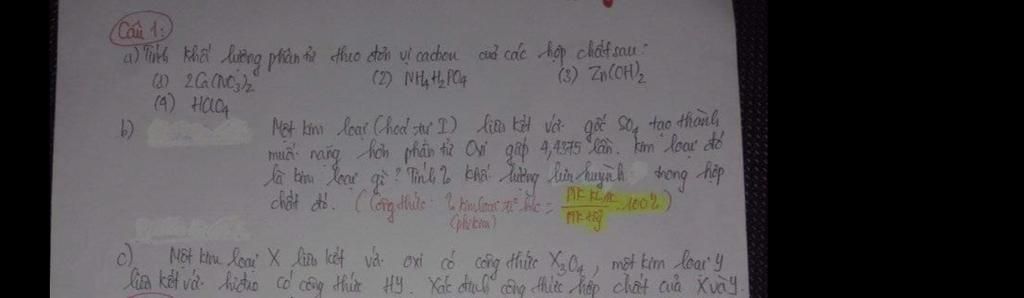 Câu 1:
a) Tính khối lượng phân tử theo đơn vị cacbon của các hợp chất sau:
(1) 2Ca(NO3)2 (2) NH4H2PO4 (3) Zn(OH)2
(4) HClO4
b) Một kim loại (hoá trị I) liên kết với gốc SO4 tạo thành
muối nặng hơn phân tử Oxi gấp 4,4375 lần. Kim loại đó
là kim loại gì? Tính % khối lượng lưu huỳnh trong hợp
chất đó. (Công thức: % kim loại = .100%)
(phi kim)
c) Một kim loại X liên kết với oxi có công thức X3O4, một kim loại Y
liên kết với hiđro có công thức HY. Xác định công thức hợp chất của X và Y.